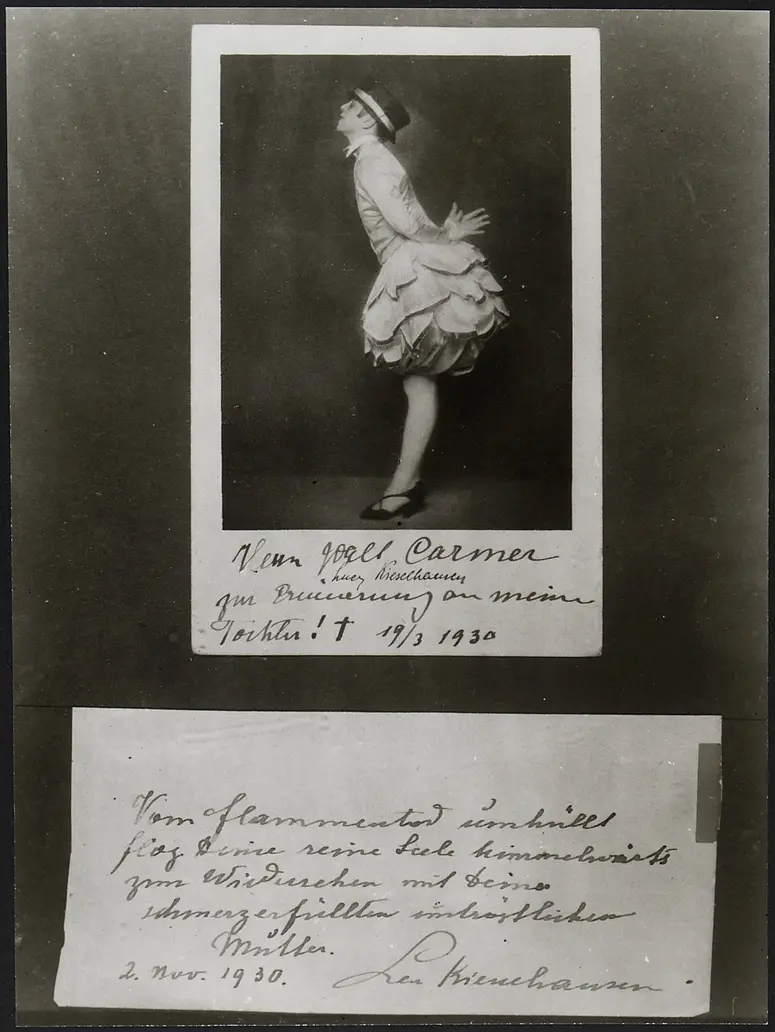 Herrn Carmer
Lucy Kieselhausen
zur Erinnerung an meine
Tochter! † 19/3 1930
Vom Flammentod umhüllt
flog Deine reine Seele himmelwärts
zum Wiedersehen mit Deine
schmerzerfüllten untröstlichen
Mutter.
2. Nov. 1930. Kieselhausen